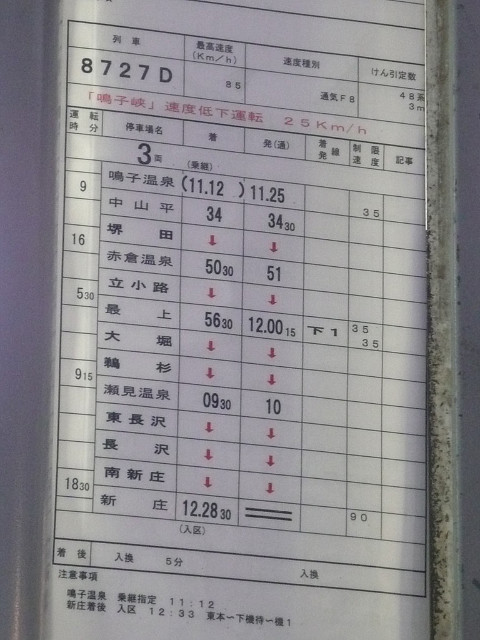 列車 最高速度(Km/h) 速度種別 けん引定数
8727D 85 通気F8 48系 3m
「鳴子峡」速度低下運転 25Km/h
運転時分 停車場名 着 発(通) 着発線 制限速度 記事
3両 (乗継)
鳴子温泉 (11.12 ) 11.25
9 35
中山平 34 34 30
堺田 ↓ ↓
16
赤倉温泉 50 30 51
立小路 ↓ ↓
5 30
最上 56 30 12.00 15 下1 35
大堀 ↓ ↓ 35
鵜杉 ↓ ↓
9 15
瀬見温泉 09 30 10
東長沢 ↓ ↓
長沢 ↓ ↓
南新庄 ↓ ↓
18 30
新庄 12.28 30 90
(入区)
着後 入換 5分 入換
注意事項
鳴子温泉 乗継指定 11:12
新庄着後 入区 12:33 東本〜下機待〜機1